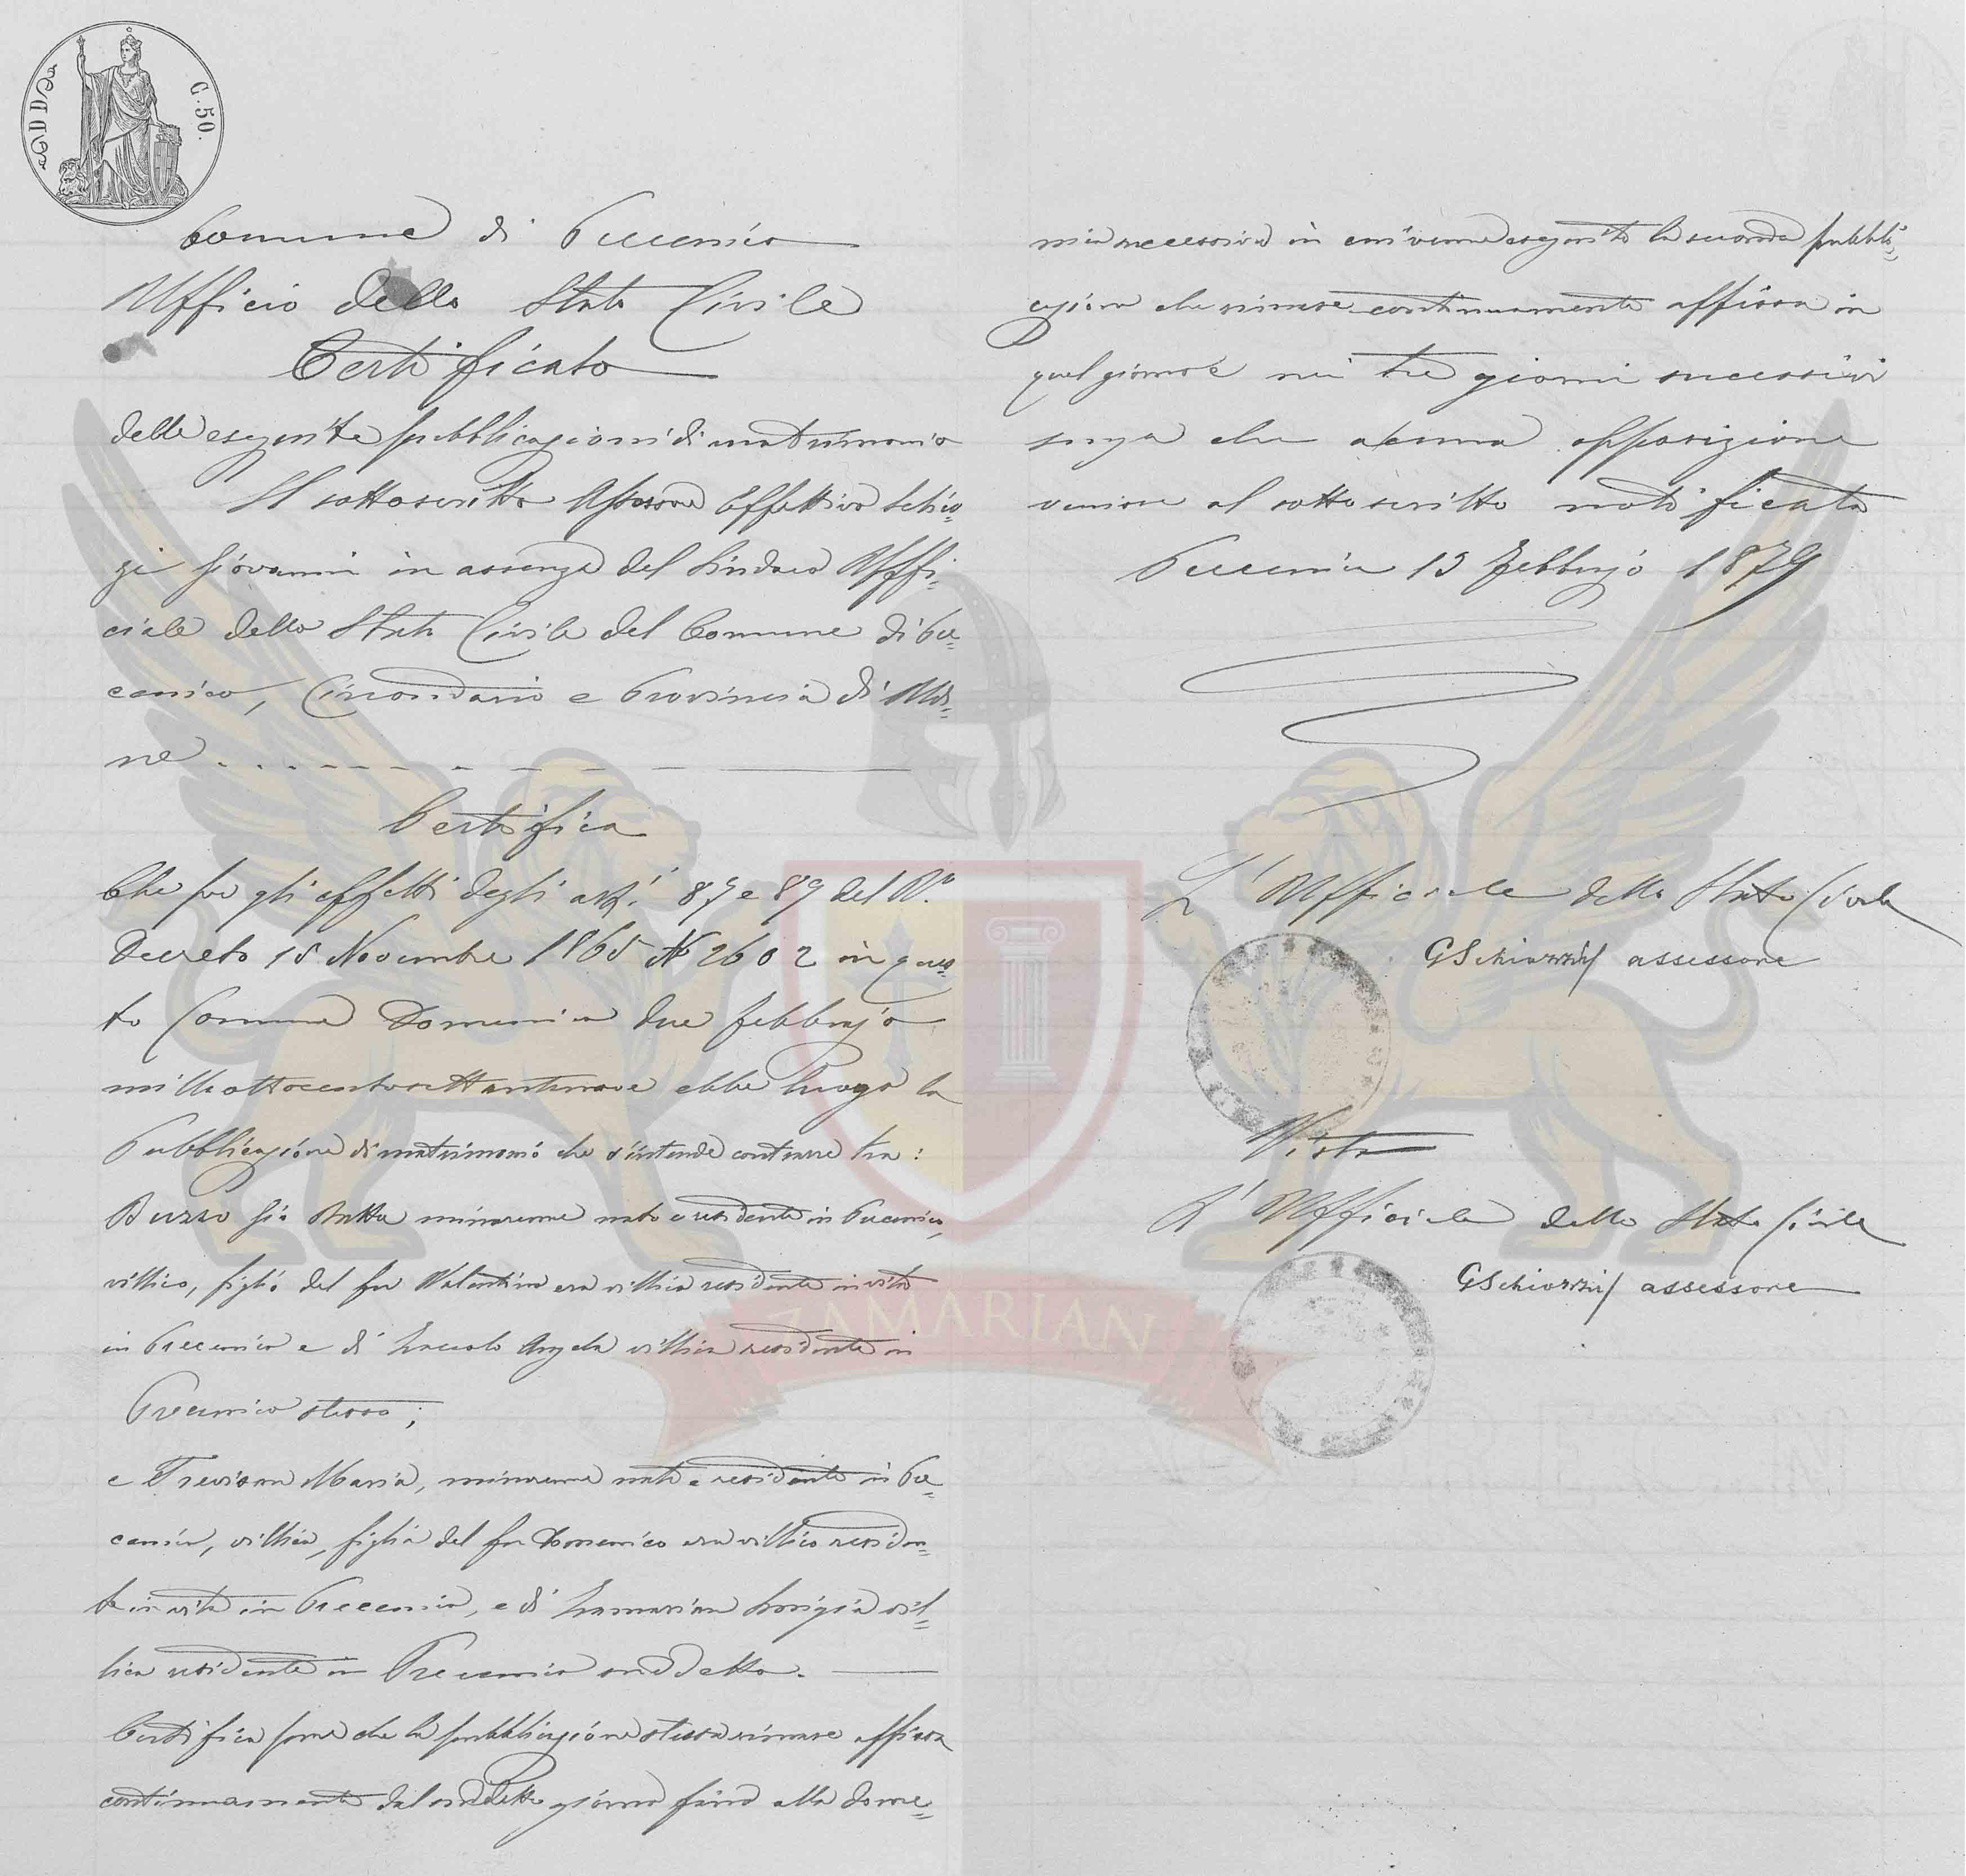 C. 50.
Comune di Precenico
Ufficio dello Stato Civile
Certificato
delle eseguite pubblicazioni di matrimonio
Il sottoscritto Assessore Effettivo Schioz-
zi Giovanni in assenza del Sindaco Uffi-
ciale dello Stato Civile del Comune di Pre-
cenico, Circondario e Provincia di Udi-
ne
Certifica
Che per gli effetti degli art.i 87 e 89 del R.o
Decreto 15 Novembre 1865 N 2602 in ques-
to Comune Domenica due febbrajo
milleottocentosettantanove ebbe luogo la
Pubblicazione di matrimonio che s'intende contrarre tra:
Buzzo Gio Batta minorenne nato e residente in Precenico,
villico, figlio del fu Valentino era villico residente in vita
in Precenico e di Angela villica residente in
Precenico stesso;
e Trevisan Maria, minorenne nata e residente in Pre-
cenico, villica, figlia del fu Domenico era villico residen-
te in vita in Precenico, e di Zamarian Luigia vil-
lica residente in Precenico suddetto.
Certifica pure che la pubblicazione stessa rimase affissa
continuamente dal suddetto giorno fino alla dome-
nica successiva in cui venne eseguita la seconda pubbli-
cazione che rimase continuamente affissa in
quel giorno e nei tre giorni successivi
senza che alcuna opposizione
venisse al sottoscritto notificata
Precenico 13 Febbrajo 1879
L'Ufficiale dello Stato Civile
GSchiozzi assessore
Visto
L'Ufficiale dello Stato Civile
GSchiozzi assessore
ZAMARIAN